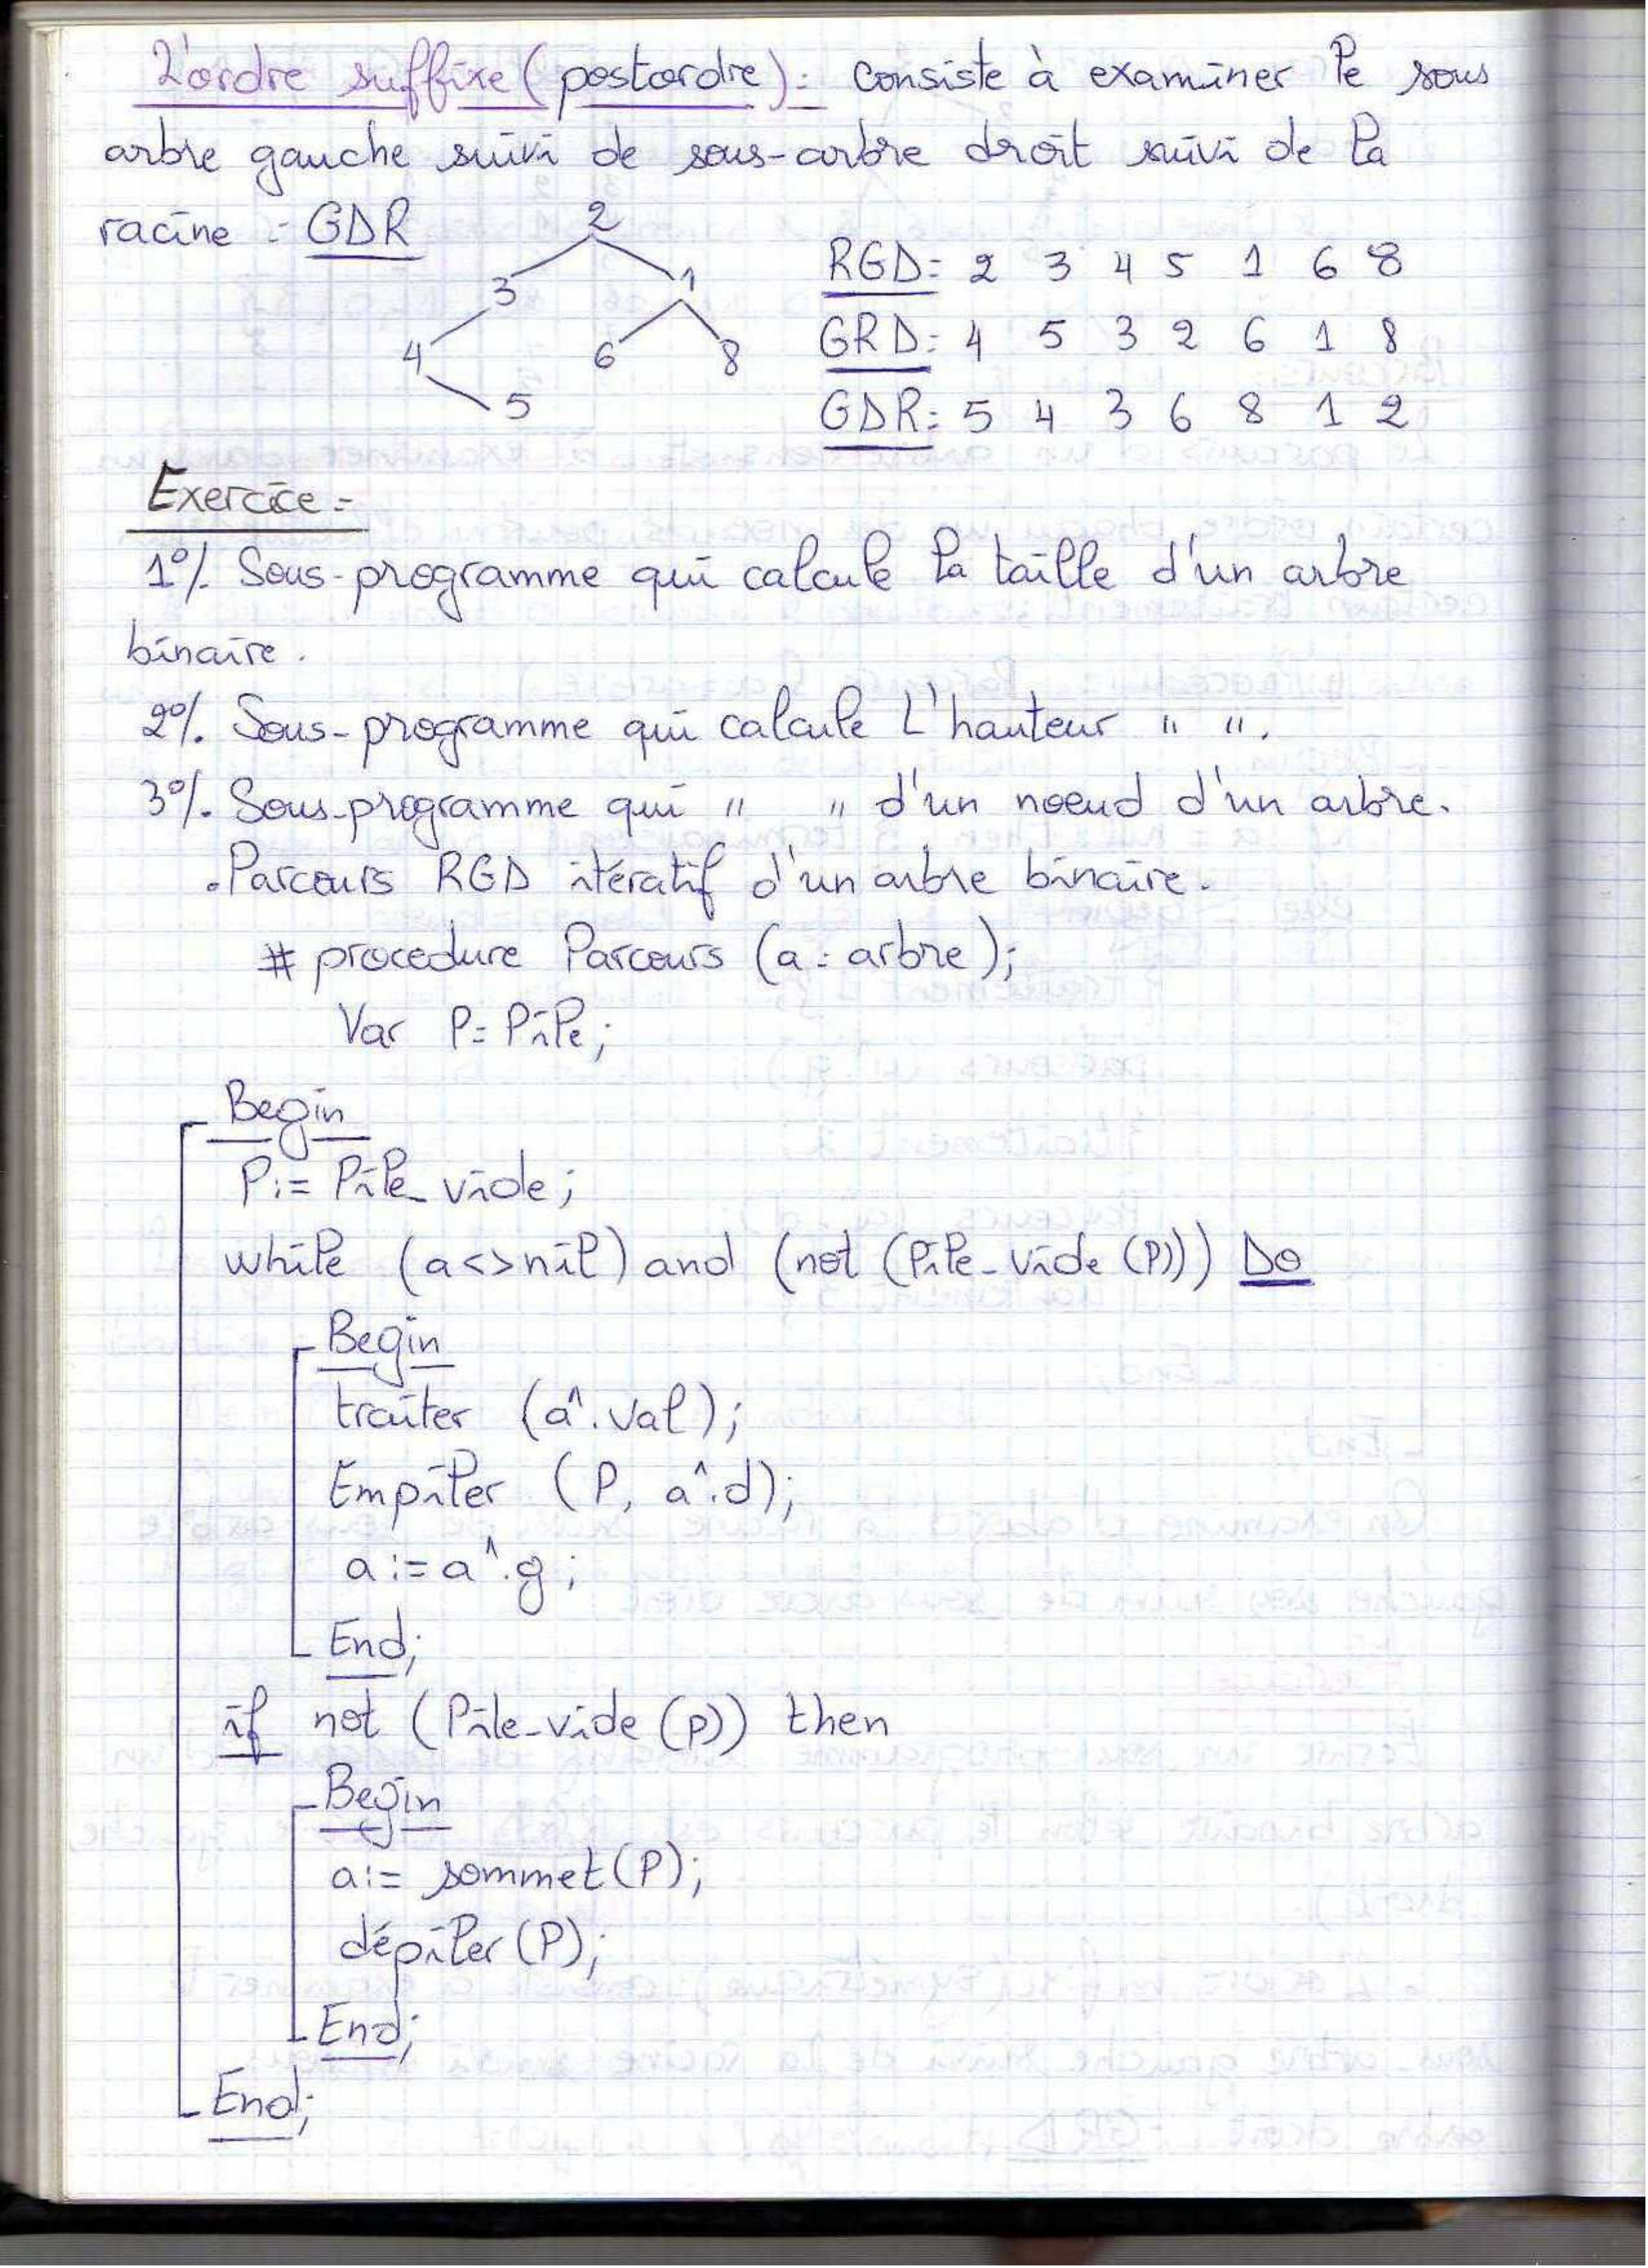 L'ordre suffixe (postordre): consiste à examiner le sous
arbre gauche suivi de sous-arbre droit suivi de la
racine : GDR
2
3 1
4 6 8
5
RGD: 2 3 4 5 1 6 8
GRD: 4 5 3 2 6 1 8
GDR: 5 4 3 6 8 1 2
Exercice:
1°/. Sous-programme qui calcule la taille d'un arbre
binaire.
2°/. Sous-programme qui calcule L'hauteur " ".
3°/. Sous-programme qui " " d'un noeud d'un arbre.
. Parcours RGD itératif d'un arbre binaire.
# procedure Parcours (a: arbre);
Var P: Pile;
Begin
P:= Pile_vide;
while (a<>nil) and (not (Pile_vide (P))) Do
Begin
traiter (a^.val);
Empiler (P, a^.d);
a:=a^.g;
End;
if not (Pile_vide (p)) then
Begin
a:= sommet(P);
dépiler(P);
End;
End;